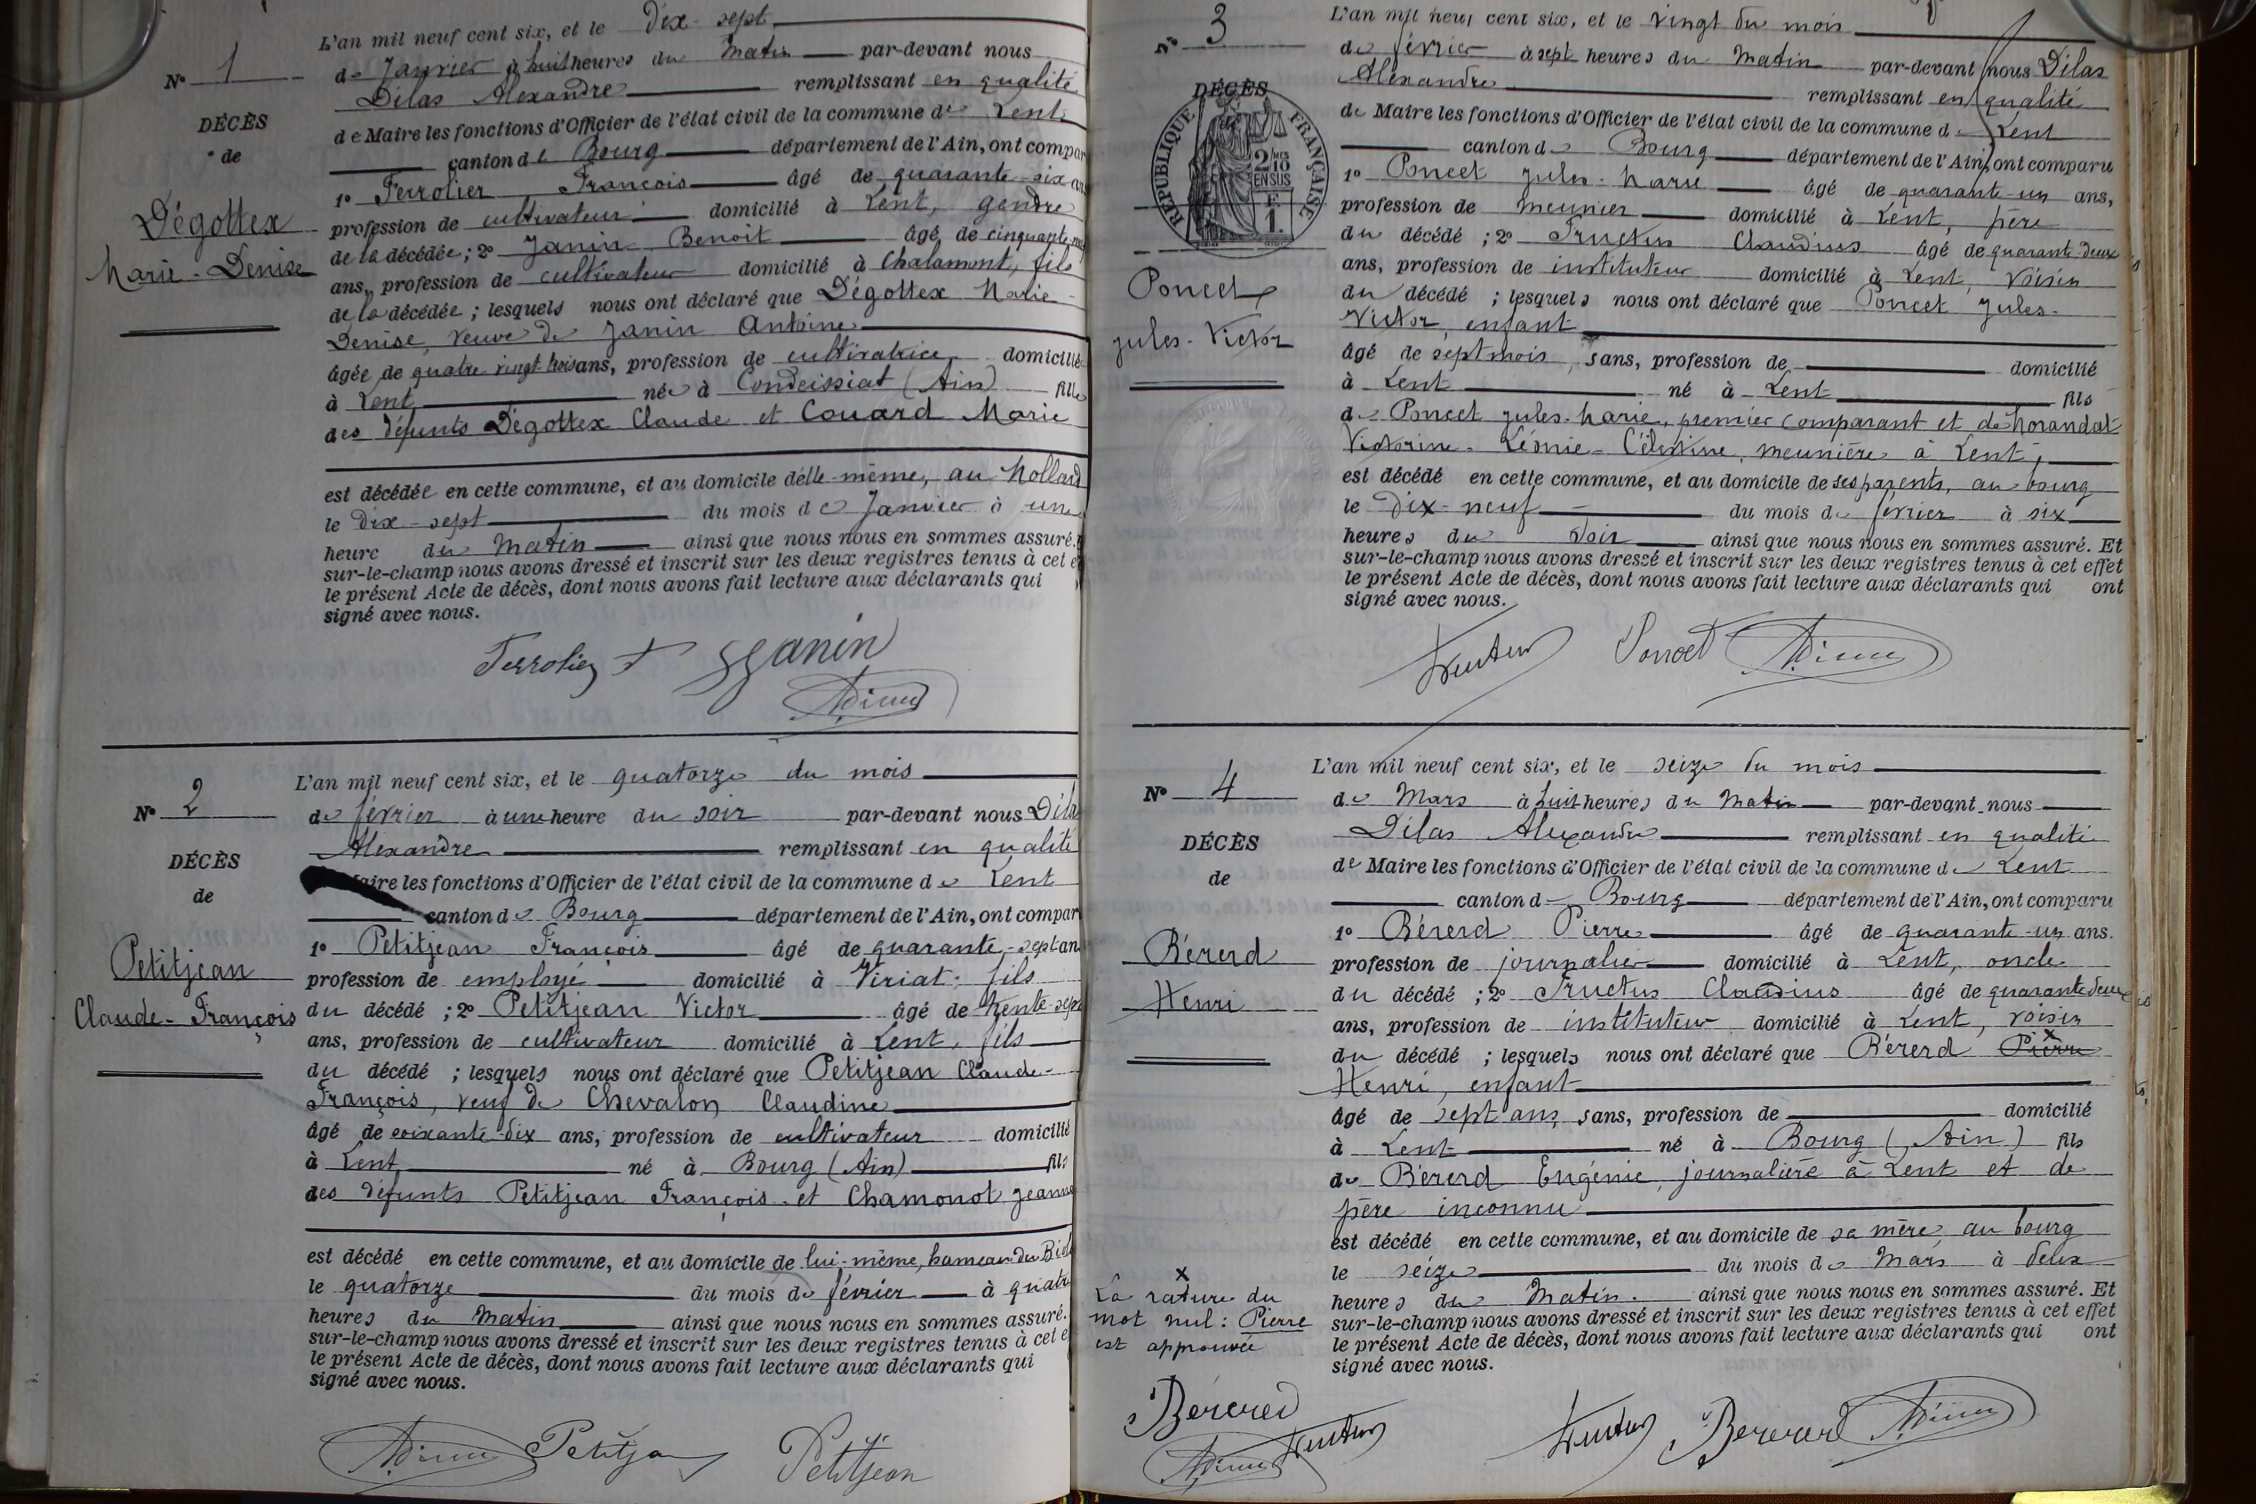 N° 1
DÉCÈS
de
Dégottex
Marie-Denise
L'an mil neuf cent six, et le dix-sept
de Janvier à huit heures du Matin par-devant nous
Dilas Alexandre remplissant en qualité
de Maire les fonctions d'Officier de l'état civil de la commune de Lent
canton de Bourg département de l'Ain, ont compar
1° Ferrolier François âgé de quarante-six an
profession de cultivateur domicilié à Lent, gendre
de la décédée ; 2° Janin Benoit âgé de cinquante
ans, profession de cultivateur domicilié à Chalamont, fils
de la décédée ; lesquels nous ont déclaré que Dégottex Marie-
Denise, veuve de Janin Antoine
âgée de quatre vingt trois ans, profession de cultivatrice domiciliée
à Lent née à Condeissiat (Ain) fille
des défunts Dégottex Claude et Couard Marie
est décédée en cette commune, et au domicile d'elle-même, au Mollard
le dix-sept du mois de Janvier à une
heure du Matin ainsi que nous nous en sommes assuré.
sur-le-champ nous avons dressé et inscrit sur les deux registres tenus à cet e
le présent Acte de décès, dont nous avons fait lecture aux déclarants qui
signé avec nous.
Ferrolier Janin
N° 2
DÉCÈS
de
Petitjean
Claude-François
L'an mil neuf cent six, et le quatorze du mois
de février à une heure du soir par-devant nous Dilas
Alexandre remplissant en qualité
Maire les fonctions d'Officier de l'état civil de la commune de Lent
canton de Bourg département de l'Ain, ont compar
1° Petitjean François âgé de quarante-sept an
profession de employé domicilié à Viriat, fils
du décédé ; 2° Petitjean Victor âgé de trente-sept
ans, profession de cultivateur domicilié à Lent, fils
du décédé ; lesquels nous ont déclaré que Petitjean Claude-
François, veuf de Chevalon Claudine
âgé de soixante-dix ans, profession de cultivateur domicilié
à Lent né à Bourg (Ain) fils
des défunts Petitjean François et Chamonot Jeanne
est décédé en cette commune, et au domicile de lui-même, hameau du
le quatorze du mois de février à quatre
heures du Matin ainsi que nous nous en sommes assuré.
sur-le-champ nous avons dressé et inscrit sur les deux registres tenus à cet e
le présent Acte de décès, dont nous avons fait lecture aux déclarants qui
signé avec nous.
Petitjean Petitjean
N° 3
DÉCÈS
RÉPUBLIQUE FRANÇAISE
2/10 EN SUS
F. 1.
Poncet
Jules-Victor
L'an mil neuf cent six, et le vingt du mois
de février à sept heures du Matin par-devant nous Dilas
Alexandre remplissant en qualité
de Maire les fonctions d'Officier de l'état civil de la commune de Lent
canton de Bourg département de l'Ain, ont comparu
1° Poncet Jules-Marie âgé de quarante-un ans,
profession de meunier domicilié à Lent, père
du décédé ; 2° Tructus Claudius âgé de quarante-deux
ans, profession de instituteur domicilié à Lent, voisin
du décédé ; lesquels nous ont déclaré que Poncet Jules-
Victor, enfant
âgé de sept mois, sans, profession de domicilié
à Lent né à Lent fils
de Poncet Jules-Marie, premier comparant et de Morandat
Victorine-Léonie-Célestine, meunière à Lent,
est décédé en cette commune, et au domicile de ses parents, au bourg
le dix-neuf du mois de février à six
heures du Soir ainsi que nous nous en sommes assuré. Et
sur-le-champ nous avons dressé et inscrit sur les deux registres tenus à cet effet
le présent Acte de décès, dont nous avons fait lecture aux déclarants qui ont
signé avec nous.
Tructus Poncet
N° 4
DÉCÈS
de
Bérerd
Henri
L'an mil neuf cent six, et le seize du mois
de Mars à huit heures du Matin par-devant nous
Dilas Alexandre remplissant en qualité
de Maire les fonctions d'Officier de l'état civil de la commune de Lent
canton de Bourg département de l'Ain, ont comparu
1° Bérerd Pierre âgé de quarante-un ans.
profession de journalier domicilié à Lent, oncle
du décédé ; 2° Tructus Claudius âgé de quarante deux
ans, profession de instituteur domicilié à Lent, voisin
du décédé ; lesquels nous ont déclaré que Bérerd Pierre x
Henri, enfant
âgé de sept ans, sans, profession de domicilié
à Lent né à Bourg (Ain) fils
de Bérerd Eugénie, journalière à Lent et de
père inconnu
est décédé en cette commune, et au domicile de sa mère, au bourg
le seize du mois de Mars à deux
heures du Matin. ainsi que nous nous en sommes assuré. Et
sur-le-champ nous avons dressé et inscrit sur les deux registres tenus à cet effet
le présent Acte de décès, dont nous avons fait lecture aux déclarants qui ont
signé avec nous.
x
La rature du
mot nul : Pierre
est approuvée
Bérerd
Tructus
Tructus Bererd